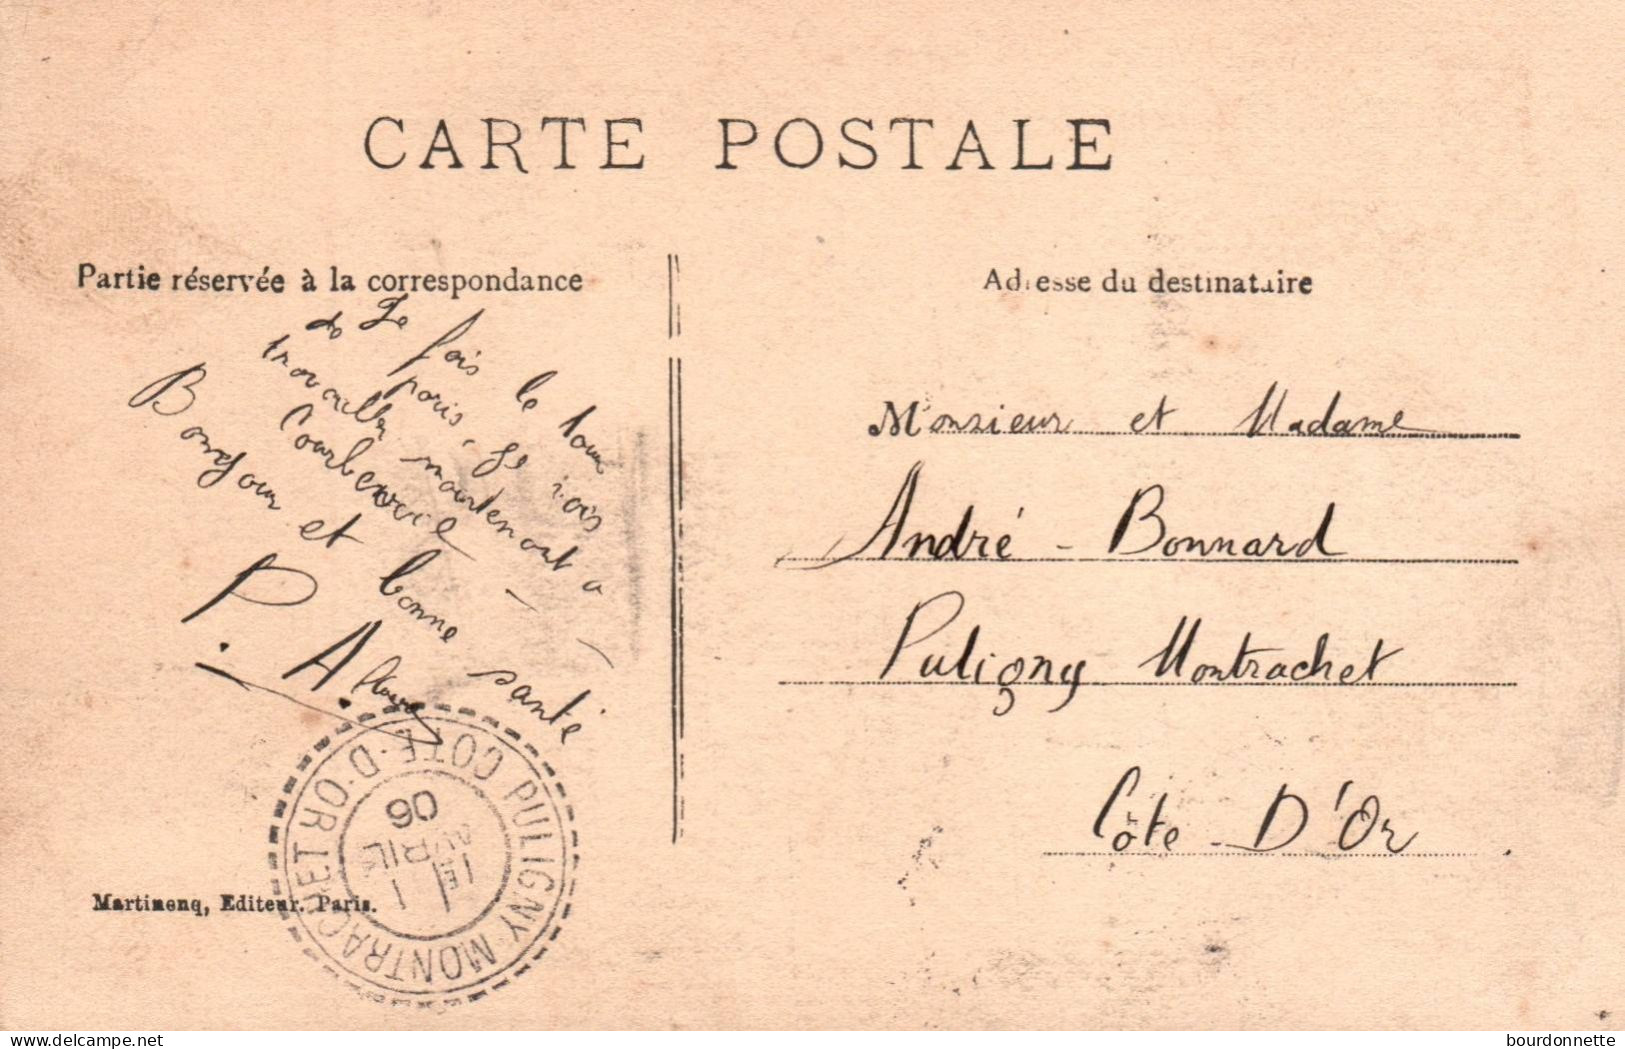 CARTE POSTALE
Partie réservée à la correspondance
Je fais le tour
de paris, Je vais
travailler maintenant a
Courbevoie
Bonjour et bonne santé
P. A.
Adresse du destinataire
Monsieur et Madame
André - Bonnard
Puligny Montrachet
Côte - D'Or
PULIGNY-MONTRACHET COTE-D'OR
1E
AVRIL
06
Martinenq, Editeur. Paris.
delcampe.net
bourdonnette